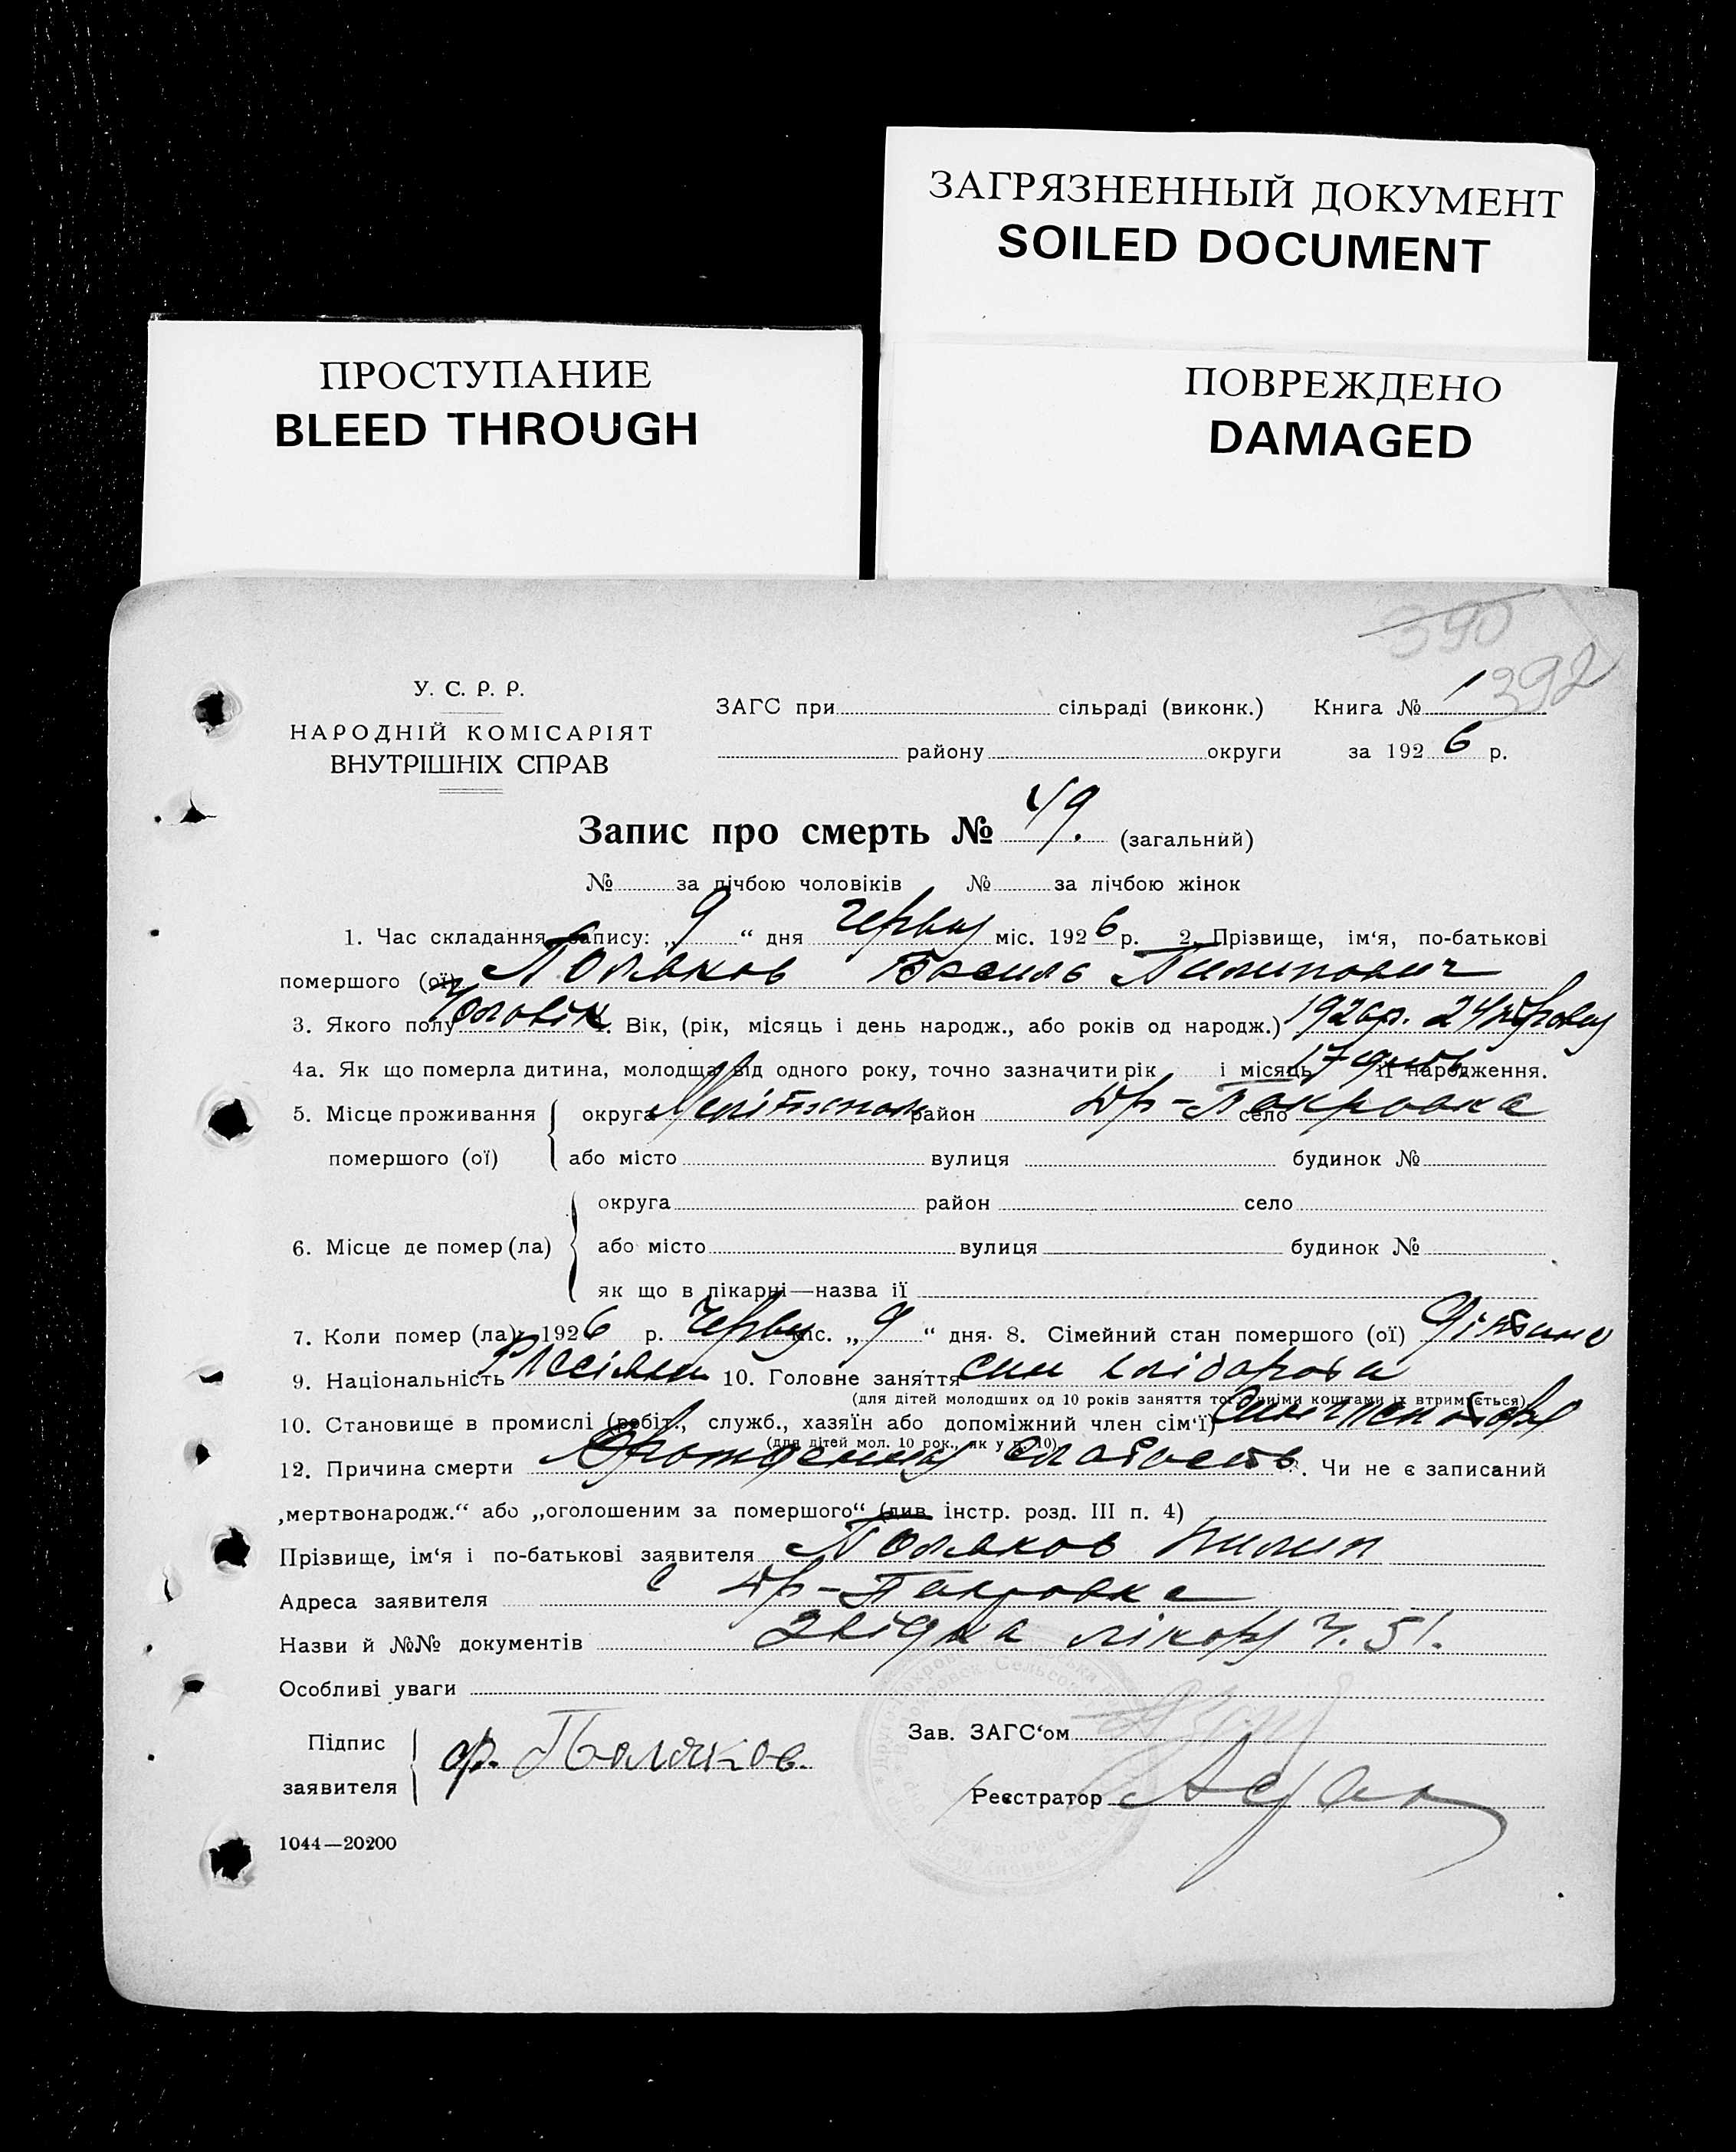 ЗАГРЯЗНЕННЫЙ ДОКУМЕНТ
SOILED DOCUMENT
ПРОСТУПАНИЕ
BLEED THROUGH
ПОВРЕЖДЕНО
DAMAGED
390
392
У. С. Р. Р.
НАРОДНІЙ КОМІСАРІЯТ
ВНУТРІШНІХ СПРАВ
ЗАГС при сільраді (виконк.) Книга № 1
району округи за 1926 р.
Запис про смерть № 49. (загальний)
№ за лічбою чоловіків № за лічбою жінок
1. Час складання запису: „9“ дня Червня міс. 1926 р. 2. Прізвище, ім'я, по-батькові
помершого (ої) Поляков Василь Пилипович
3. Якого полу Чоловік 4. Вік, (рік, місяць і день народж., або років од народж.) 1926р. 24
4а. Як що померла дитина, молодща від одного року, точно зазначити рік і місяць її народження. 17 днів
5. Місце проживання помершого (ої) округа Мелітополь район Др-Покровка село
або місто вулиця будинок №
6. Місце де помер (ла) округа район село
або місто вулиця будинок №
як що в лікарні—назва її
7. Коли помер (ла): 1926 р. Червня міс. „9“ дня. 8. Сімейний стан помершого (ої) Дитина
9. Національність 10. Головне заняття син хлібороба
(для дітей молодших од 10 років заняття того чиїми коштами їх втримується)
10. Становище в промислі (робіт., служб., хазяїн або допоміжний член сім'ї) Син
(для дітей мол. 10 рок., як у п. 10)
12. Причина смерти слабость. Чи не є записаний
„мертвонародж.“ або „оголошеним за помершого“ (див інстр. розд. III п. 4)
Прізвище, ім'я і по-батькові заявителя Поляков Пилип
Адреса заявителя с Др-Покровка
Назви й №№ документів Звідка лікаря Ч. 51.
Особливі уваги
Підпис заявителя ф. Поляков.
Зав. ЗАГС'ом
Реєстратор
1044—20200